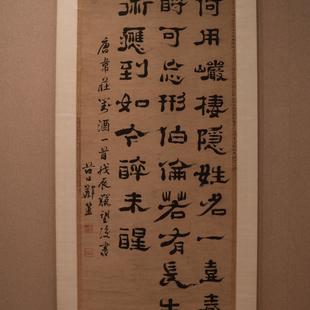 何用巖棲隱姓名一壺春
酎可忘形伯倫若有長生
術應到如今醉未醒
唐韋莊對酒一首戊辰臘望後書
谷口鄭簠